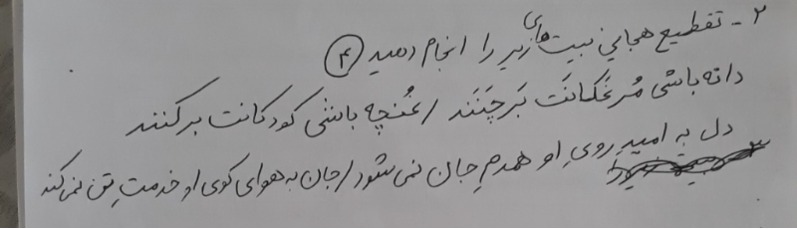 ۲- تقطیع هجایی بیت های زیر را انجام دهید (۴)
دانه باشی مُرغَکانَت بَرچِنَند / غُنچه باشی کودکانت برکنند
دل به امیدِ رویِ او همدمِ جان نمی شود / جان به هوای کوی او خدمتِ تن نمی کند